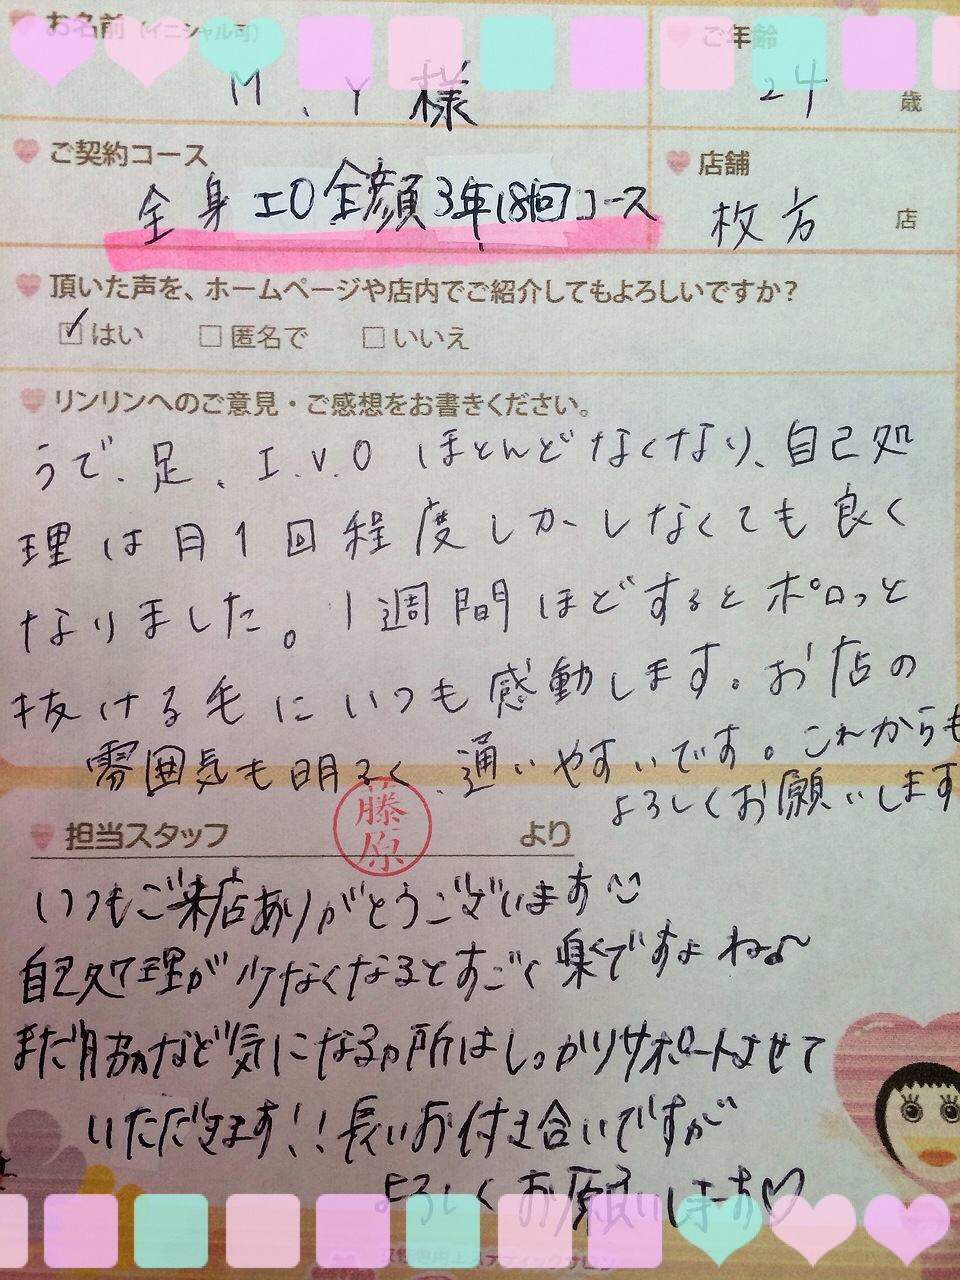 お名前（イニシャル可）
M.Y様
ご年齢
24 歳
ご契約コース
全身 IO 全顔 3年18回コース
店舗
枚方 店
頂いた声を、ホームページや店内でご紹介してもよろしいですか？
はい 匿名で いいえ
リンリンへのご意見・ご感想をお書きください。
うで、足、I.V.O ほとんどなくなり、自己処
理は月1回程度しかしなくても良く
なりました。1週間ほどするとポロっと
抜ける毛にいつも感動します。お店の
雰囲気も明るく、通いやすいです。これからも
よろしくお願いします
担当スタッフ 藤原 より
いつもご来店ありがとうございます
自己処理が少なくなるとすごく楽ですよね〜
まだ脇など気になるヵ所はしっかりサポートさせて
いただきます!!長いお付き合いですが
よろしくお願いします♡
女性専用エステティックサロン